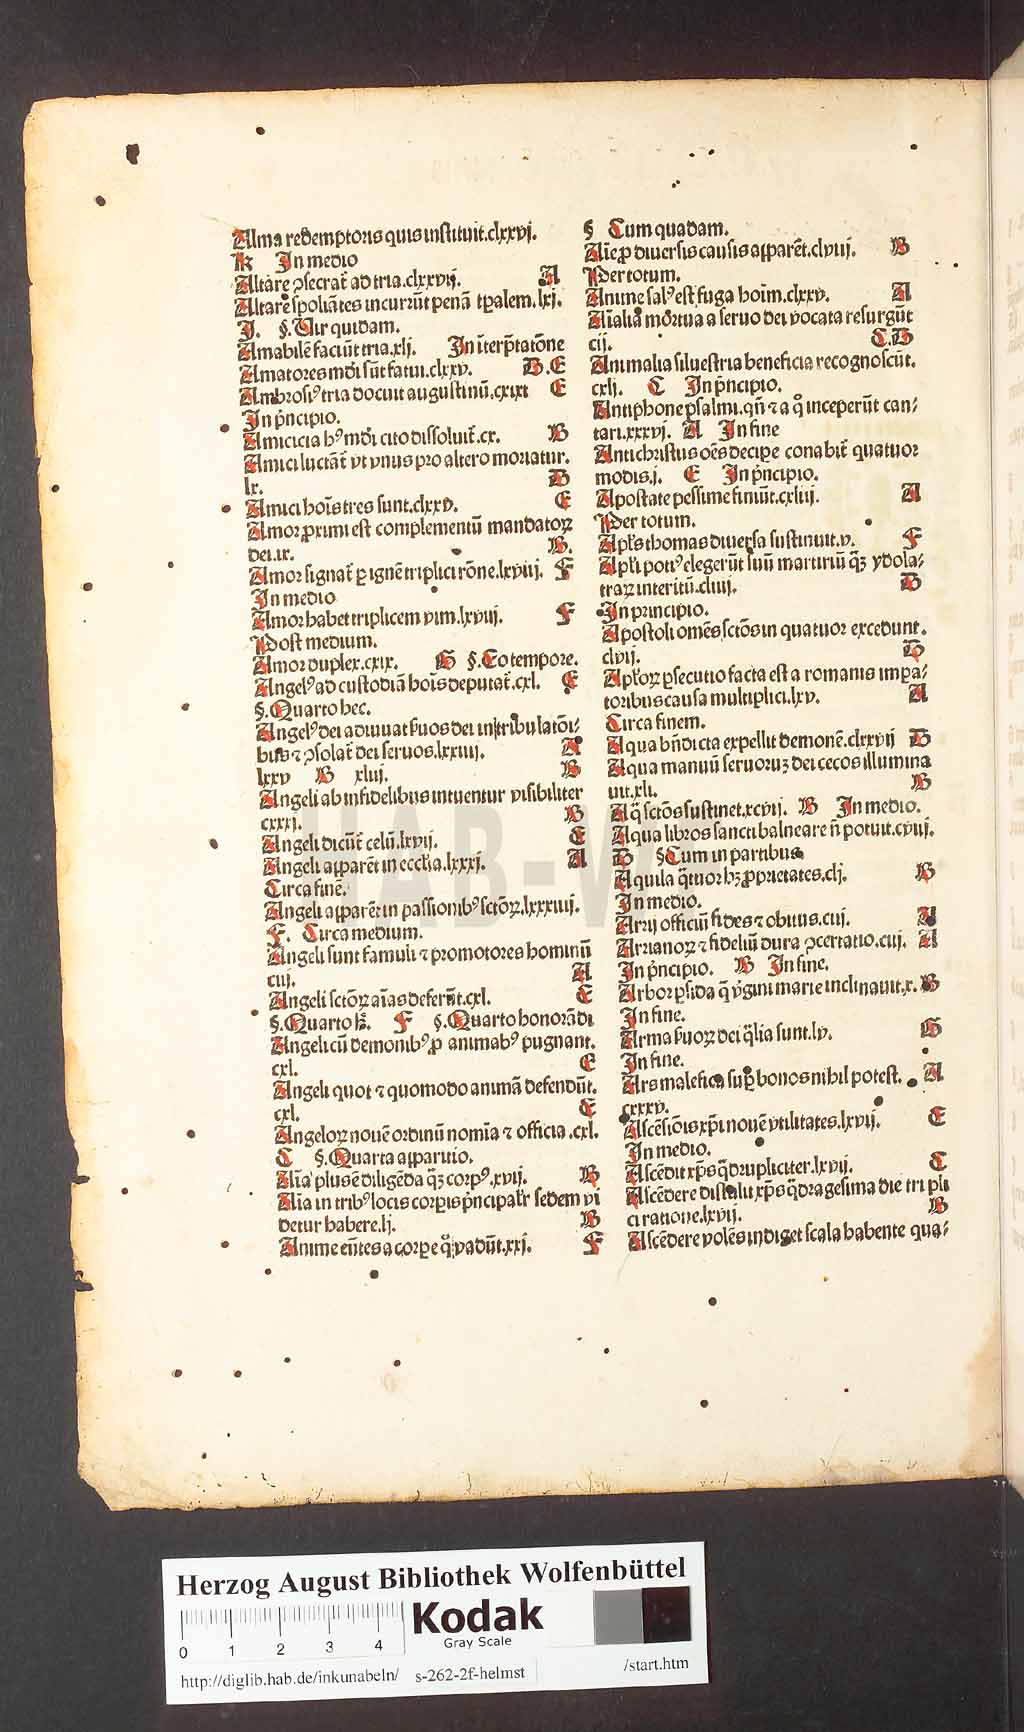 Alma redemptoris quis instituit.clxxvj.
K In medio
Altare ꝯsecrat᷑ ad tria.clxxvij. A
Altare spoliātes incurrūt penā tꝑalem.lxj.
J. §.Uir quidam.
Amabilē faciūt tria.xlj. In īterp̄tatōne
Amatores mōi sūt fatui.clxxv. D.E
Ambrosiꝰ tria docuit augustinū.cxixi E
In pͥncipio.
Amicicia hꝰ mōi cito dissoluit᷑.cx. B
Amici luctāt᷑ vt vnus pro altero moriatur.
lx. D
Amici hoīs tres sunt.clxxv. E
Amor ꝓximi est complementū mandatoꝝ
dei.ix. B.
Amor signat᷑ ꝑ ignē triplici rōne.lxviij. F
In medio
Amor habet triplicem vim.lxviij. F
Post medium.
Amor duplex.cxix. G §.Eo tempore.
Angelꝰ ad custodiā hoīs deputat᷑.cxl. E
§.Quarto hec.
Angelꝰ dei adiuuat ẜuos dei in tribulatōi⸗
bus ⁊ ꝯsolat᷑ dei seruos.lxxiiij. A
lxxv B xliij. B
Angeli ab infidelibus intuentur visibiliter
cxxxj. B
Angeli dicūt᷑ celū.lxvij. E
Angeli apparēt in ecclīa.lxxxj. A
Circa finē.
Angeli apparēt in passionibꝰ sctōꝝ.lxxxiiij.
F. Circa medium.
Angeli sunt famuli ⁊ promotores hominū
ciij. A
Angeli sctōꝝ aīas deferūt.cxl. E
§.Quarto hꝫ. F §.Quarto honorādi
Angeli cū demonibꝰ ꝓ animabꝰ pugnant.
cxl. E
Angeli quot ⁊ quomodo animā defendūt.
cxl. E
Angeloꝝ nouē ordinū nomīa ⁊ officia.cxl.
C §.Quarta apparitio.
Aīa plus ē diligēda qͣꝫ corpꝰ.xvij. B
Aīa in tribꝰ locis corꝑis pͥncipalr̄ sedem vi
detur habere.lj. B
Anime eūtes a corꝑe qͦ vadūt.xxj. F
§ Cum quadam.
Aīe ꝓ diuersis causis apparēt.clviij. B
Per totum.
Anime salꝰ est fuga hoīm.clxxv. A
Aīalia mortua a seruo dei vocata resurgūt
cij. C.D
Animalia siluestria beneficia recognoscūt.
cxlj. C In pͥncipio.
Antiphone psalmi.qn̄ ⁊ a qͦ inceperūt can⸗
tari.xxxvj. A In fine
Antichristus oēs decipe conabit᷑ quatuor
modis.j. E In pͥncipio.
Apostate pessime finiūt.cxliij. A
Per totum.
Apl̄s thomas diuersa sustinuit.v. F
Apl̄i potiꝰ elegerūt suū martiriū qͣꝫ ydola⸗
traꝝ interitū.cliij. D
In principio.
Apostoli omēs sctōs in quatuor excedunt.
clvij. D
Apl̄oꝝ ꝑsecutio facta est a romanis impa⸗
toribus causa multiplici.lxv. A
Circa finem.
Aqua bn̄dicta expellit demonē.clxxvij D
Aqua manuū seruoruꝫ dei cecos illumina
uit.xlj. B
Aq̄ sctōs sustinet.xcvij. B In medio.
Aqua libros sancti balneare n̄ potuit.cviij.
D §Cum in partibus
Aquila qͣtuor hꝫ ꝓprietates.clj. B
In medio.
Arij officiū fides ⁊ obitus.ciij. A
Arrianoꝝ ⁊ fideliū dura ꝯcertatio.ciij. A
In pͥncipio. B In fine.
Arbor ꝑsida q̄ vͥgini marie inclinauit.x. B
In fine.
Arma ẜuoꝝ dei qͣlia sunt.lv. G
In fine.
Ars malefica suꝑ bonos nihil potest. A
cxxxv.
Ascēsiōis xp̄i nouē vtilitates.lxvij. E
In medio.
Ascēdit xp̄s qͣdrupliciter.lxvij. C
Ascēdere distulit xp̄s qͣdragesima die tripli
ci ratione.lxvij. B
Ascēdere volēs indiget scala habente qua⸗
HAB-W
Herzog August Bibliothek Wolfenbüttel
0 1 2 3 4
Kodak
Gray Scale
http://diglib.hab.de/inkunabeln/ s-262-2f-helmst /start.htm